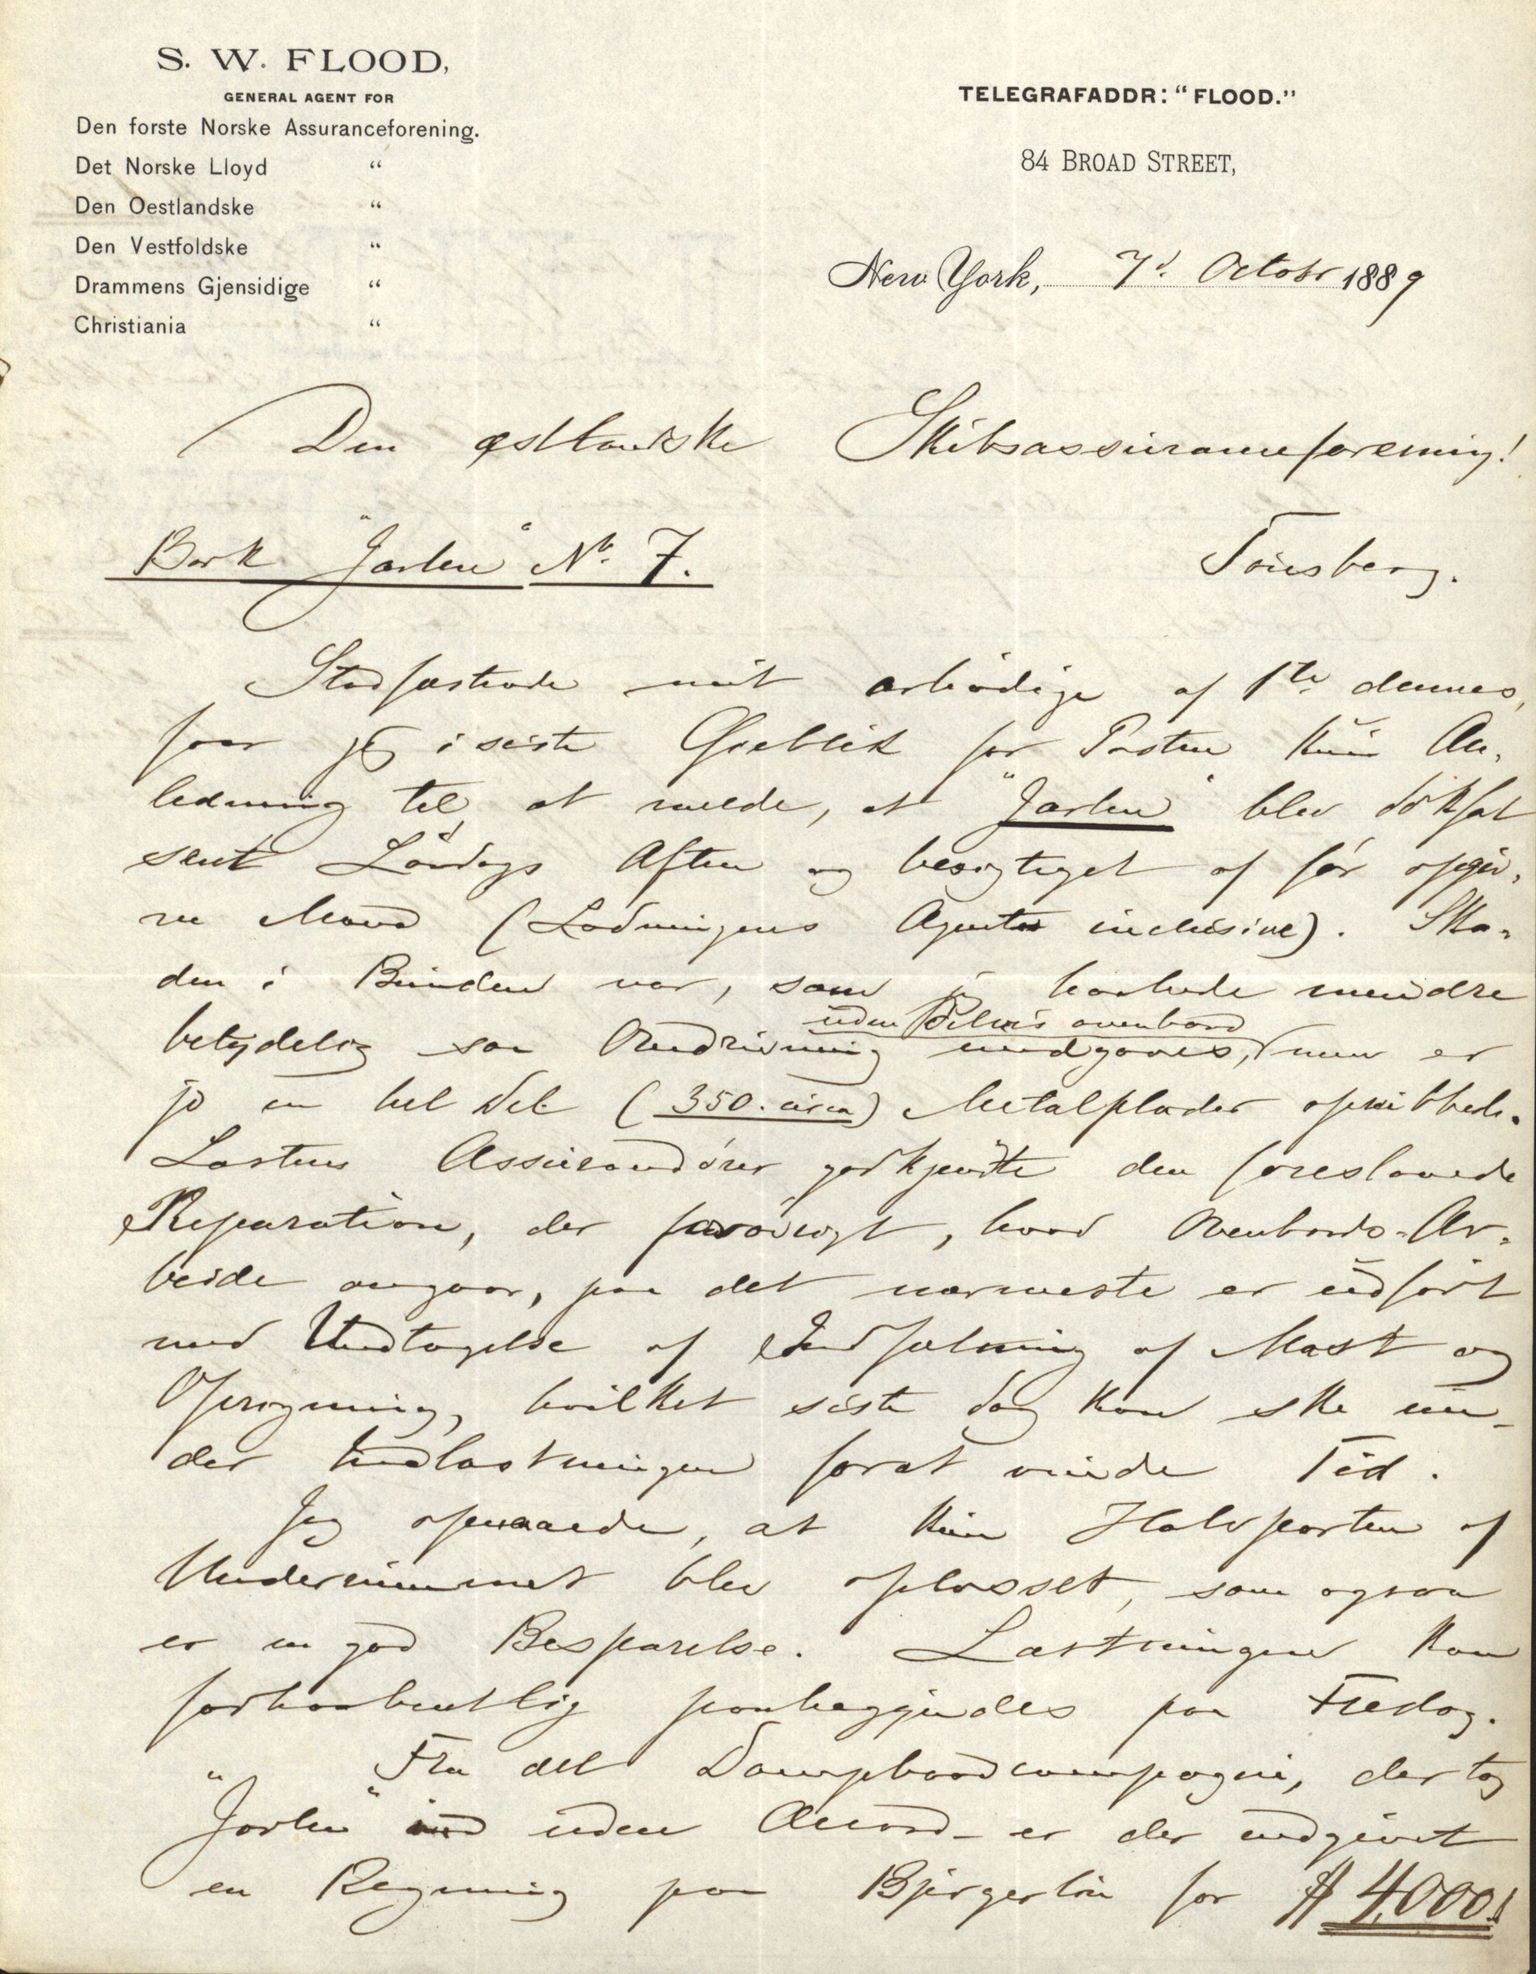 S. W. FLOOD,
GENERAL AGENT FOR
Den forste Norske Assuranceforening.
Det Norske Lloyd “
Den Oestlandske “
Den Vestfoldske “
Drammens Gjensidige “
Christiania “
TELEGRAFADDR: “FLOOD.”
84 BROAD STREET,
New York, 7d. Octobr 1889
Den østlandske Skibsassuranceforening!
Bark "Jarlen" No. 7.
Tönsberg.
Stadfæstende mit ærbödige af 1ste dennes,
faar jeg i siste Øieblik før Posten kun An-
ledning til at melde, at "Jarlen" blev döksat
sent Lördags Aften og besigtiget af før opgiv-
ne Mænd (Ladningens Agenter inclusive). Ska-
den i Bunden var, som jeg haabede mindre
betydelig saa Omdrivning undgaaes, uden delvis ovenbord men er
jo en hel Del (350 circa) Metalplader opribbede.
Lastens Assurandörer godkjendte den foreslaaede
Reparation, der forövrigt, hvad Ovenbords-Ar-
beide angaar, paa det nærmeste er udfört
med Undtagelse af Indsætning af Mast og
Oprigning, hvilket siste dog kan ske un-
der Indlastningen forat vinde Tid.
Jeg opnaaede, at kun Halvparten af
Underrummet blev oplosset, som ogsaa
er en god Besparelse. Lastningen kan
forhaabentlig paabegyndes paa Fredag.
Fra det Dampbaadcompagni, der tog
"Jarlen" ind uden Accord er der indgivet
en Regning paa Bjergerlön for $ 4,000!